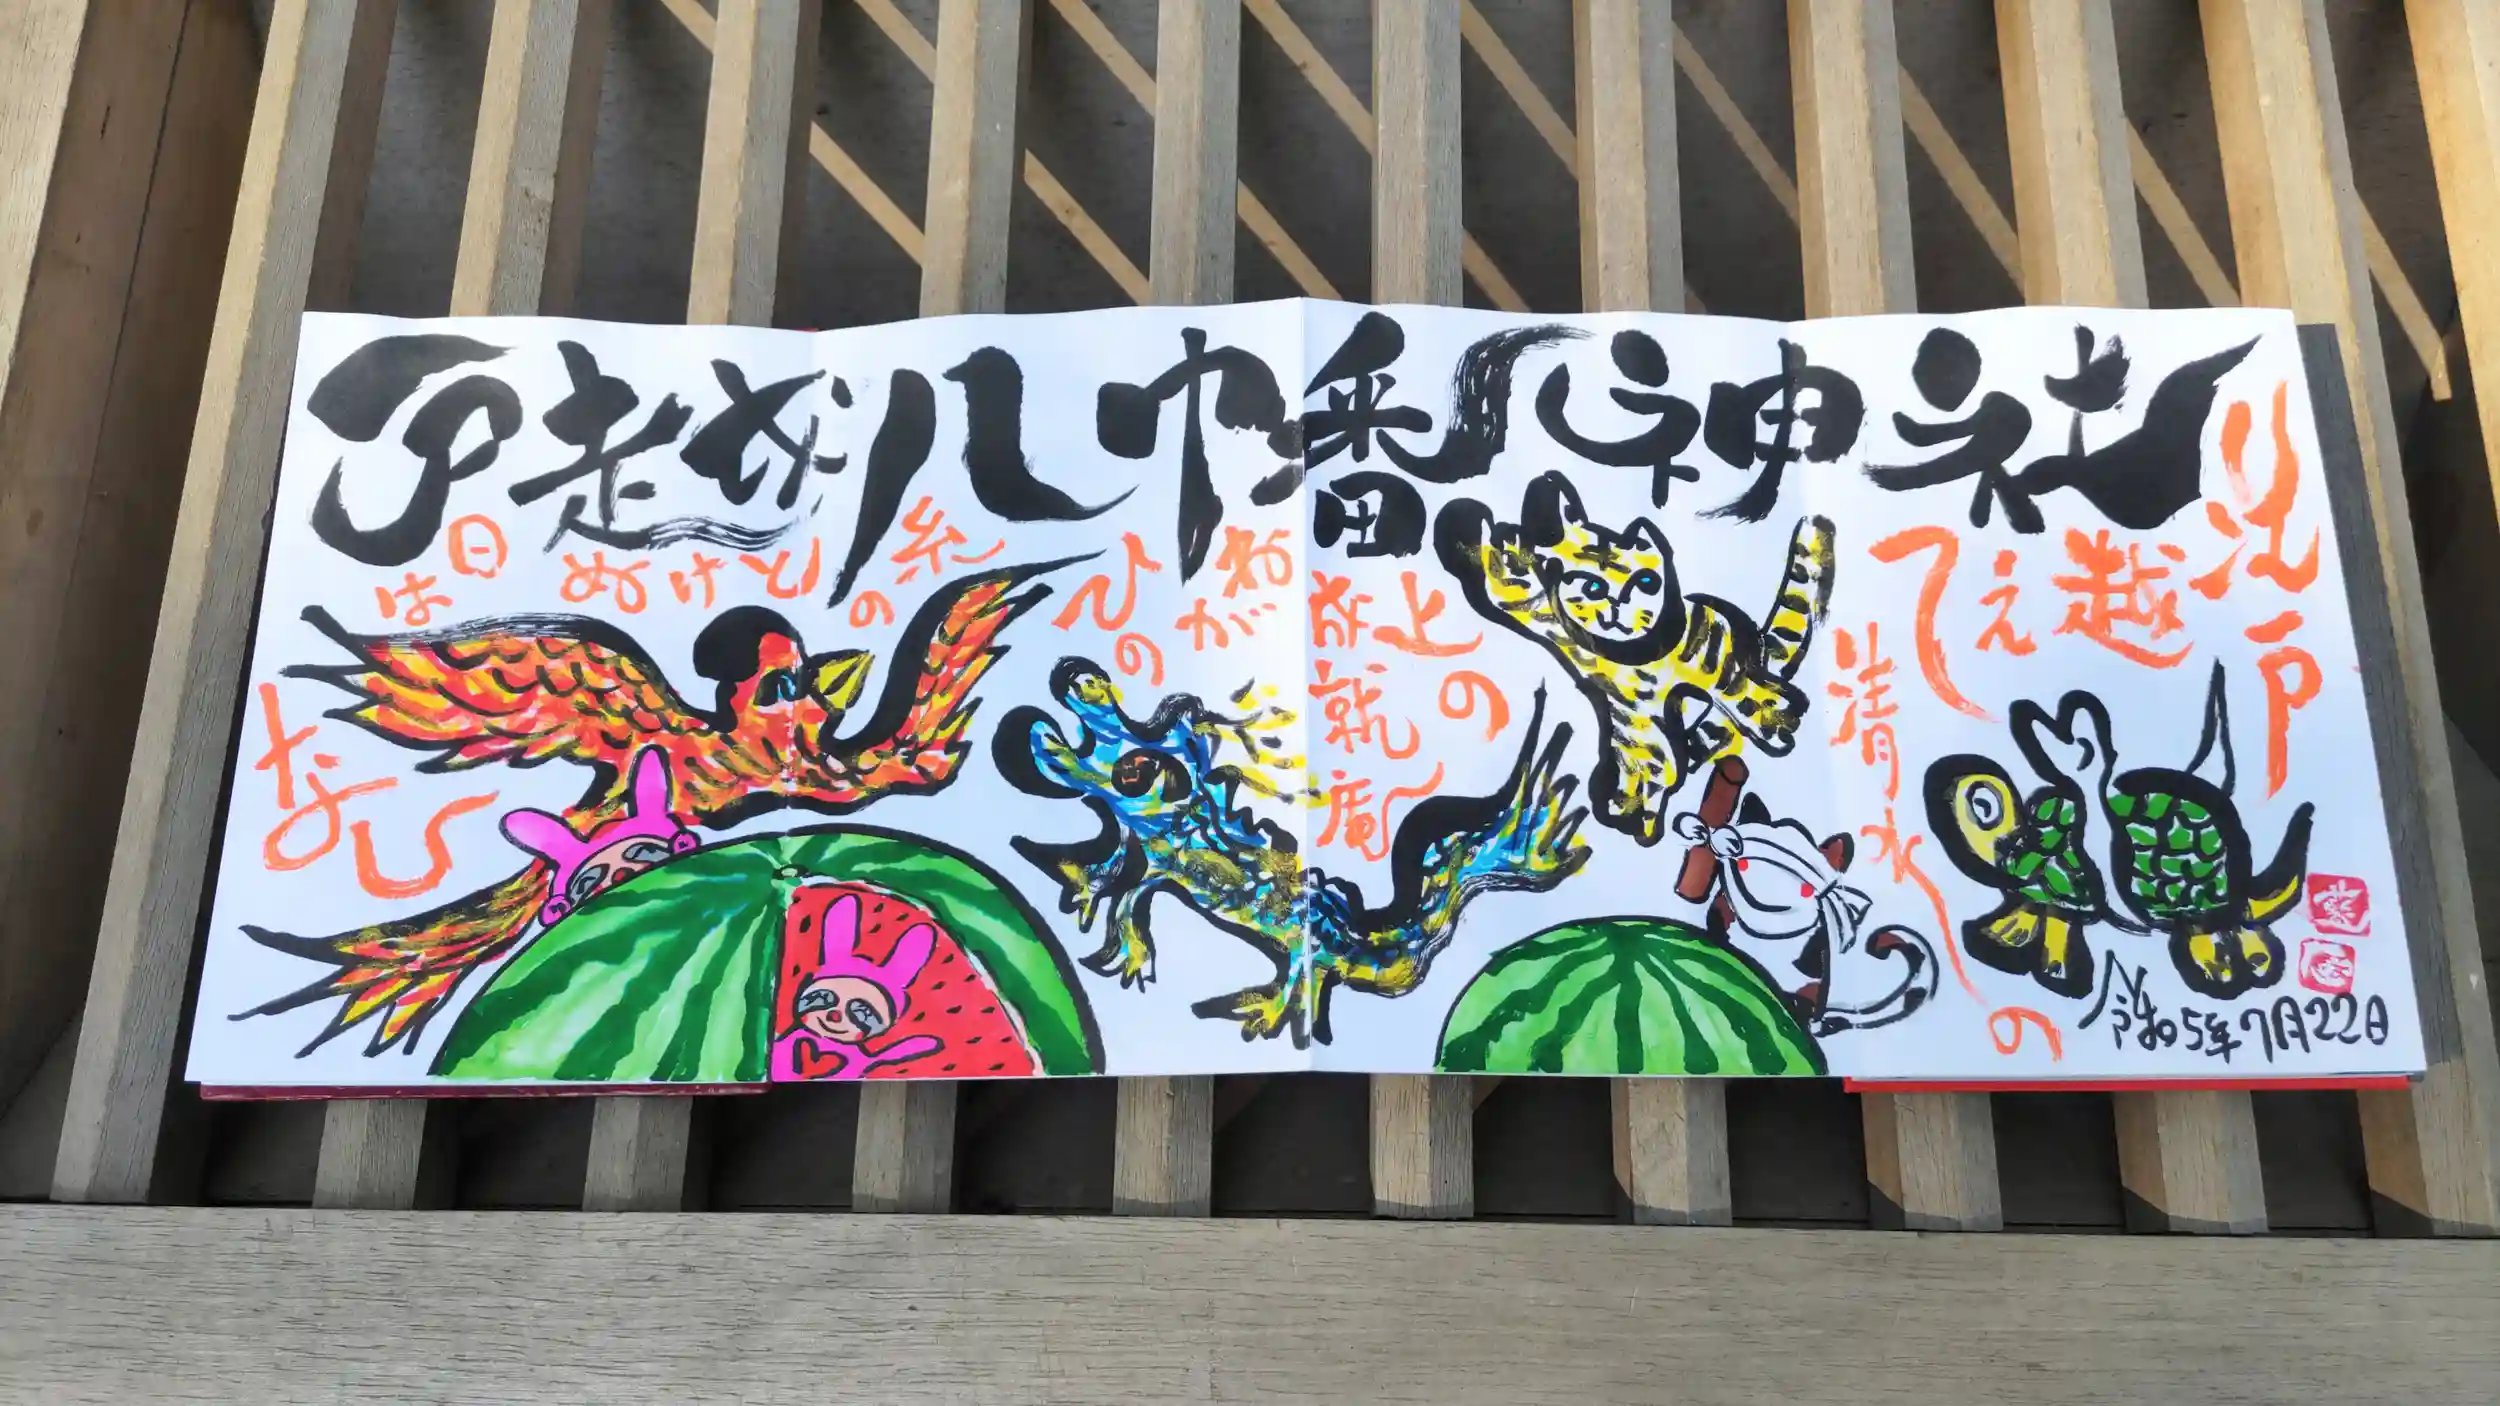 戸越八幡神社
江戸
越えて
清水の
上の
成就庵
ねがひの
糸の
とけぬ
日は
なひ
令和5年7月22日